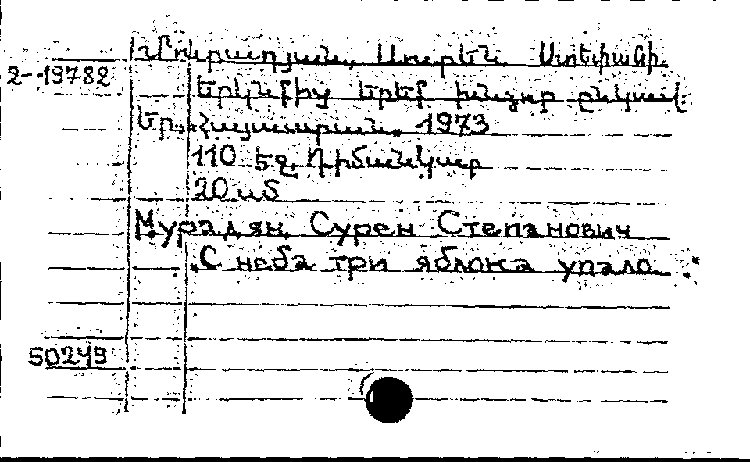 Մուրադյան, Սուրեն Ստեփանի.
2-19782
Երկնքից երեք խնձոր ընկավ.
Եր., Հայաստան, 1973
110 էջ, դիմանկար
20 սմ
Мурадян, Сурен Степанович
С неба три яблока упало.
50249